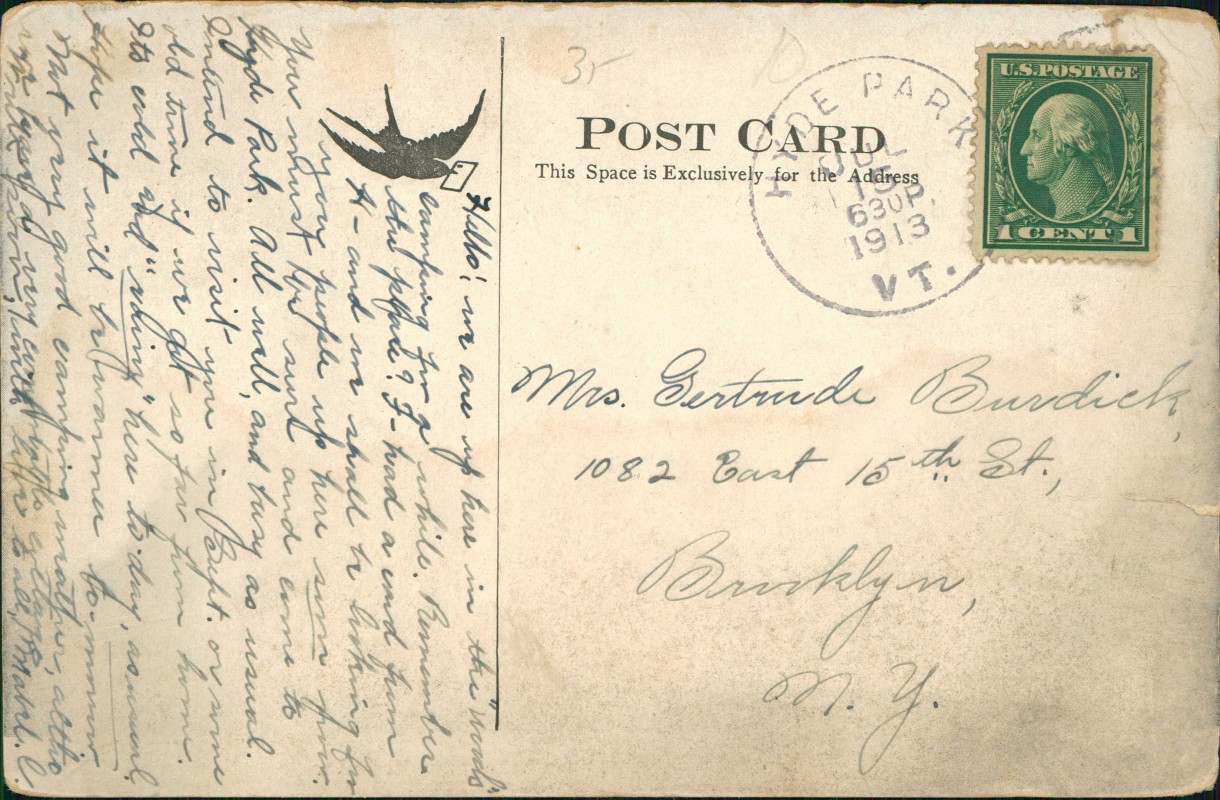 POST CARD
This Space is Exclusively for the Address
HYDE PARK
JUL
15
630P.
1913
VT.
U.S. POSTAGE
1 CENT 1
Mrs. Gertrude Burdick,
1082 East 15th St.,
Brooklyn,
N. Y.
Hello! we are up here in the "Woods"
camping for a while. Remember
the place? I had a card from
A- and we shall be looking for
your people up here soon now.
You must be sure and come to
Hyde Park. All well, and busy as usual.
Intend to visit you in Sept. or some
old time if we get so far from home.
Its cold and "rainy" here to-day, as usual
Hope it will be warmer to-morrow
Not very good camping weather, altho
we enjoy our cottage
Mabel. C.